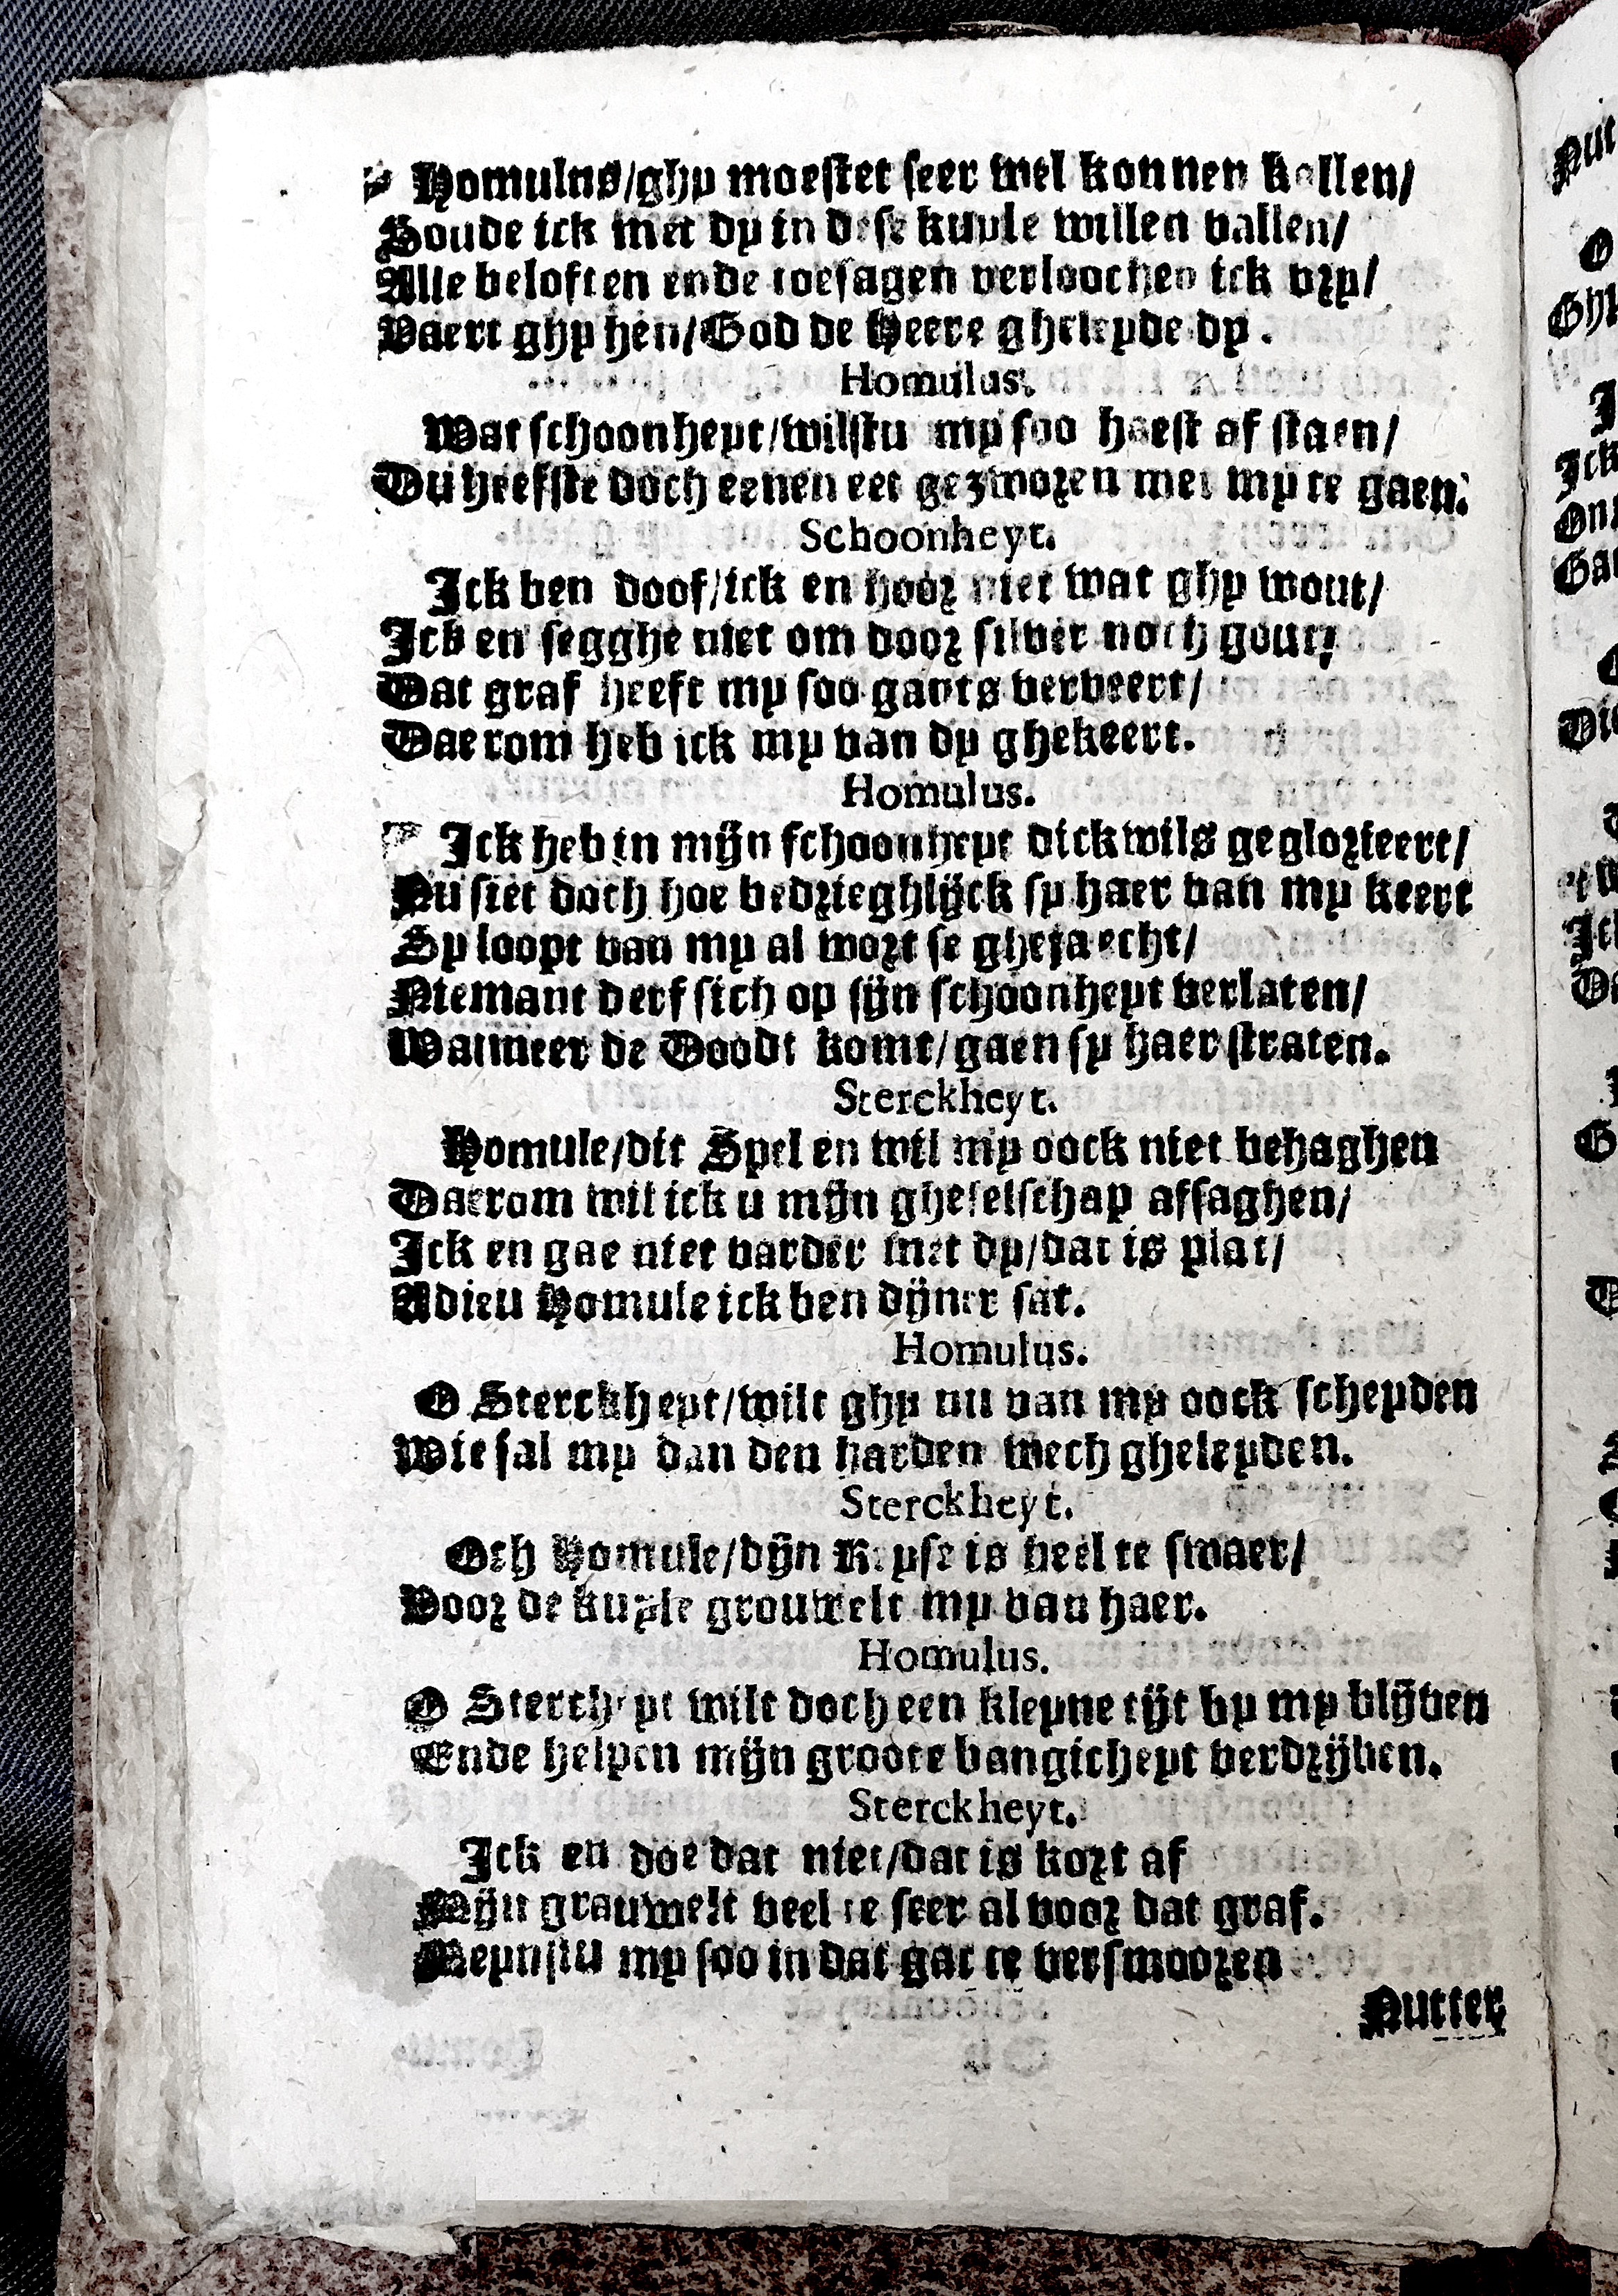 Homulus/ghy moestet seer wel konnen kallen/
Soude ick met dy in dese kuyle willen vallen/
Alle beloften ende toesagen verloochen ick vry/
Vaert ghy hen/God de Heere gheleyde dy.
Homulus.
Wat schoonheyt/wilstu my soo haest af staen/
Du heefste doch eenen eet gezworen met my te gaen.
Schoonheyt.
Ick ben doof/ick en hoor niet wat ghy wout/
Ick en segghe niet om voor silver noch gout/
Dat graf heeft my soo gants verveert/
Daerom heb ick my van dy ghekeert.
Homulus.
Ick heb in mijn schoonheyt dickwils geglorieert/
Nu siet doch hoe bedrieghlijck sy haer van my keert
Sy loopt van my al wort se ghejaecht/
Niemant derf sich op sijn schoonheyt verlaten/
Wanneer de Doodt komt/gaen sy haer straten.
Sterckheyt.
Homule/dit Spel en wil my oock niet behaghen
Daerom wil ick u mijn gheselschap affaghen/
Ick en gae niet varder met dy/dat is plat/
Adieu Homule ick ben dijner sat.
Homulus.
O Sterckheyt/wilt ghy nu van my oock scheyden
Wie sal my dan den harden wech gheleyden.
Sterckheyt.
Och Homule/dijn Reyse is heel te swaer/
Voor de kuyle grouwelt my van haer.
Homulus.
O Stercheyt wilt doch een kleyne tijt by my blijven
Ende helpen mijn groote bangicheyt verdrijven.
Sterckheyt.
Ick en doe dat niet/dat is kort af
Mijn grauwelt veel te seer al voor dat graf.
Meynstu my soo in dat gat te versmooren
Nutter